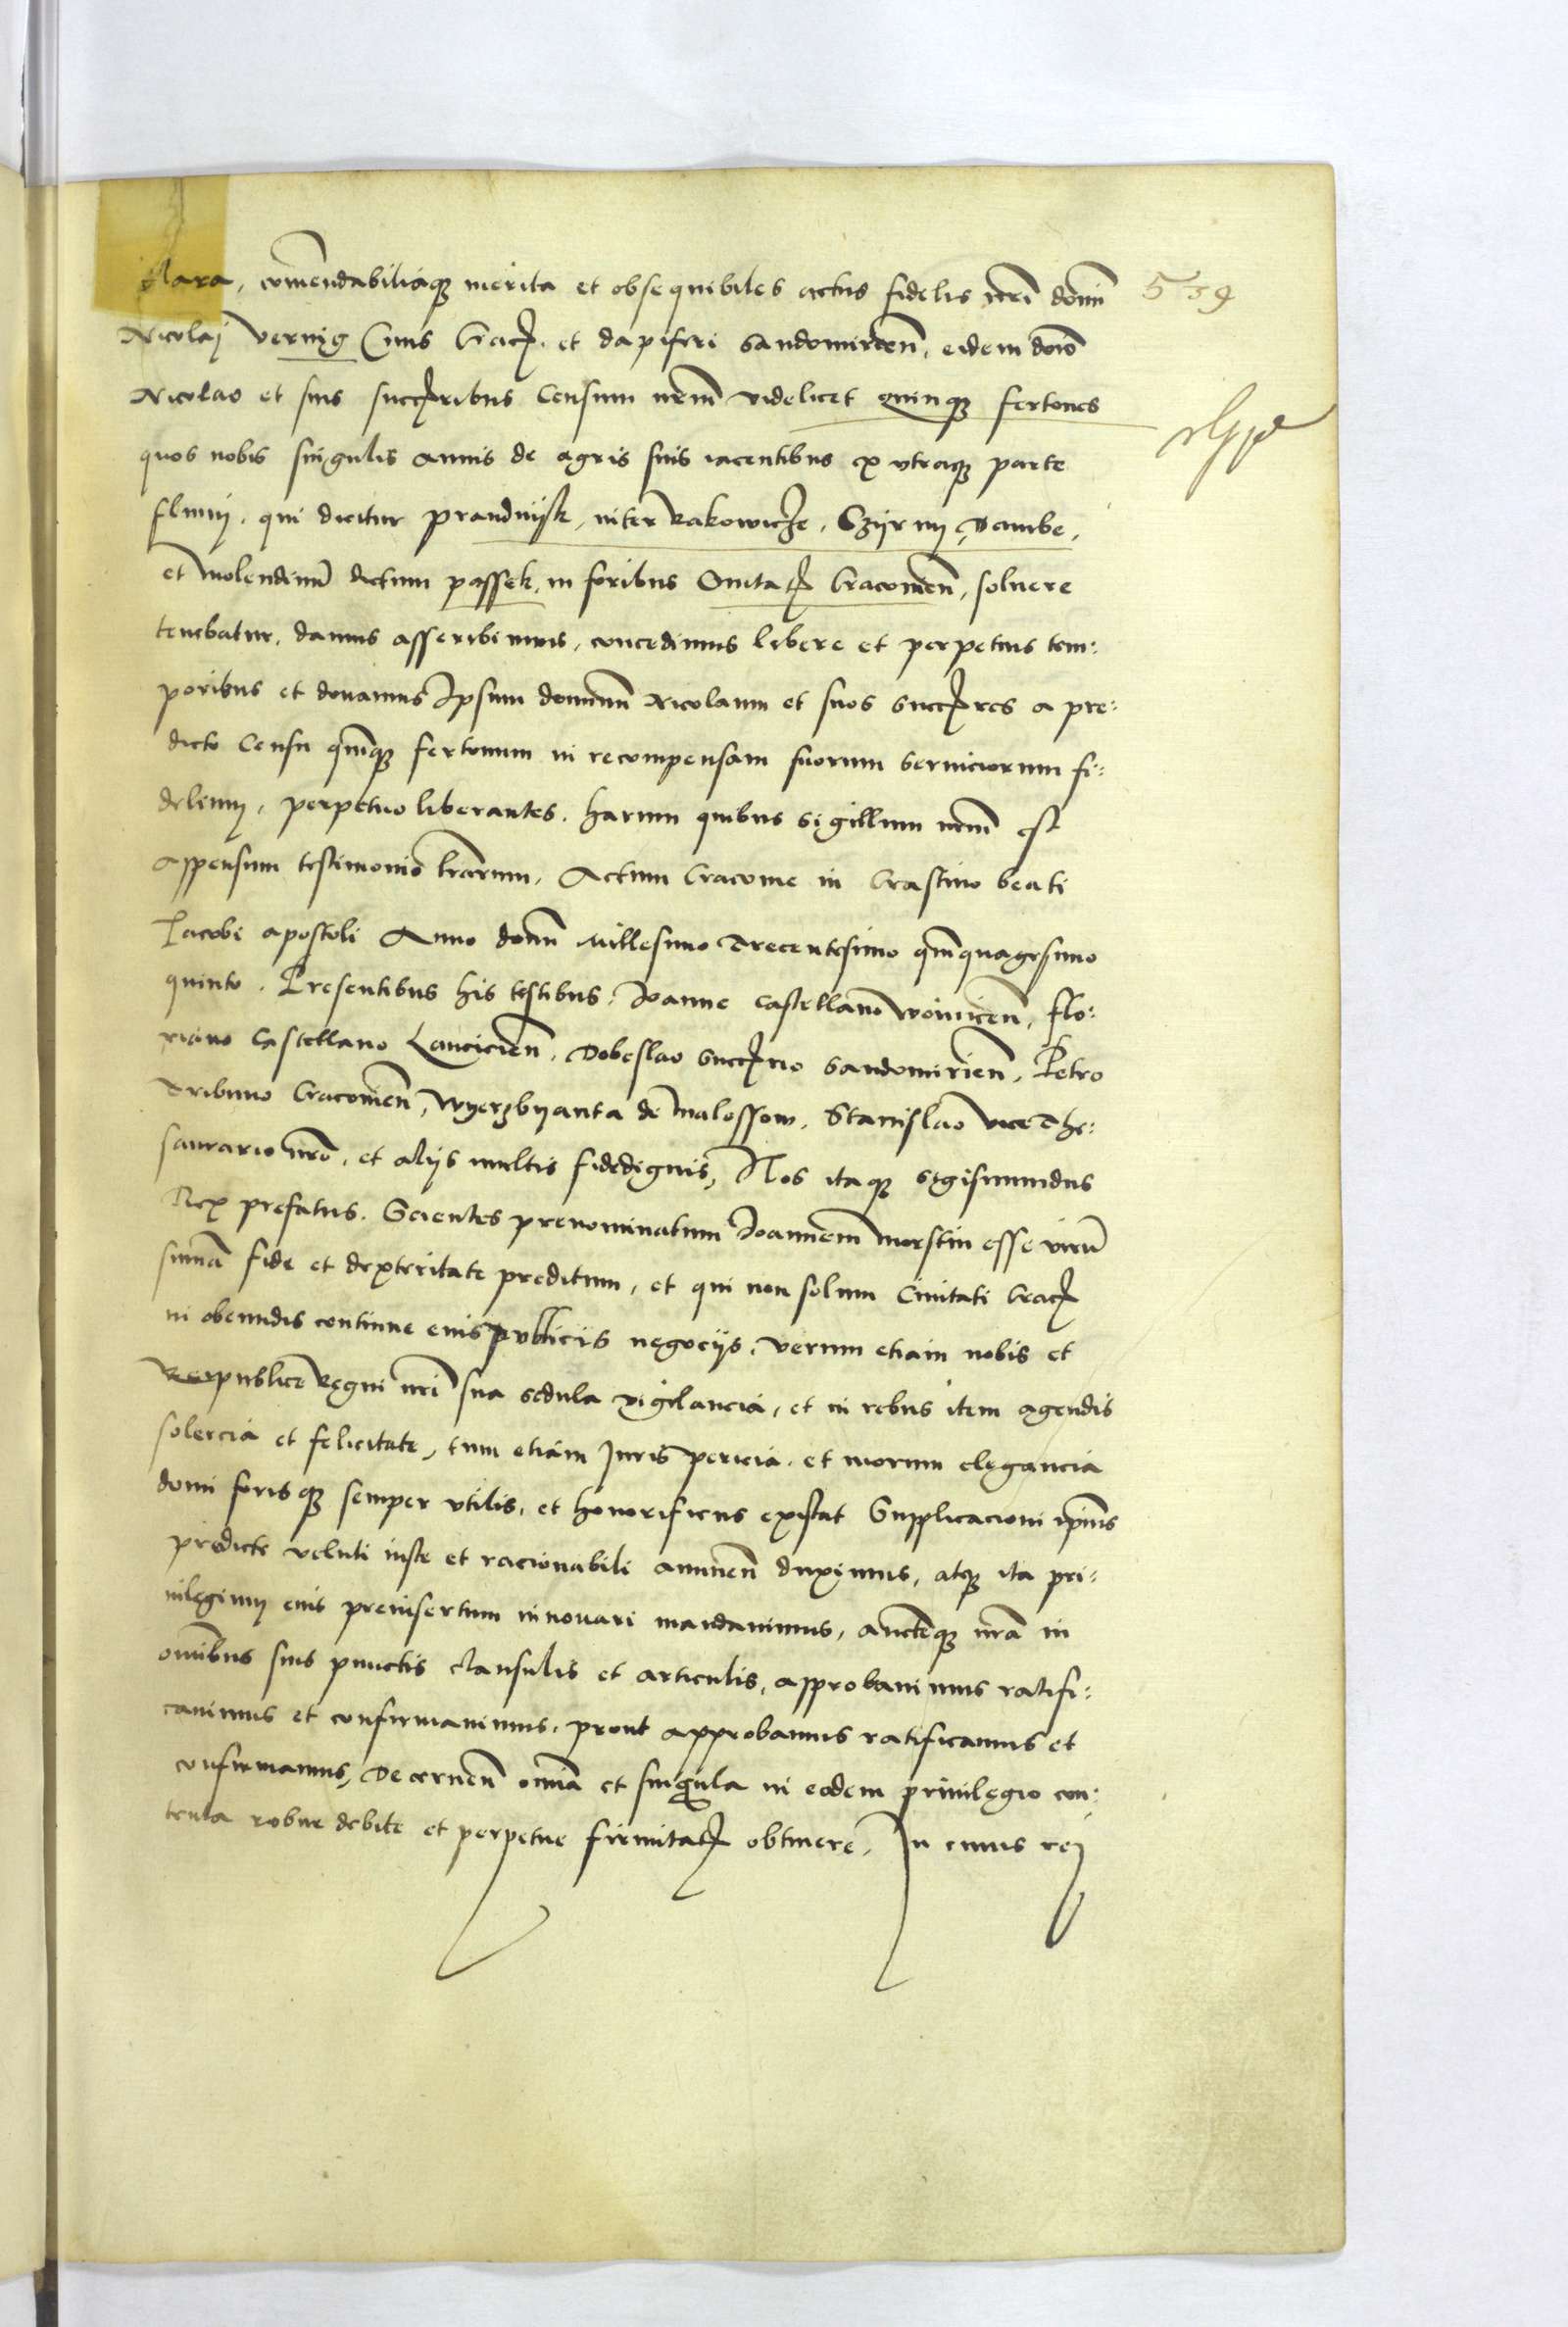 clara, comendabiliaq3 merita et obsequibiles actus fidelis nrī domī 539
Nicolaj Vernig Ciuis Crac. et dapiferi Sandomircen̄, eidem domō
Nicolao et suis succribus Censum nrm̄ videlicet quinq3 fertones
quos nobis singulis annis de agris suis iacentibus ex vtraq3 parte
fluuij. qui dicitur prandnijk, inter Rakowicze, Czijrnij, Dambe,
et molendinū dictum passek, in foribus Ciuitatis Cracouien̄, soluere
tenebatur, damus asscribimus, concedimus libere et perpetuis tem:
poribus et donamus Ipsum dominū Nicolaum et suos succres a pre:
dicto Censu quinq3 fertonum in recompensam suorum seruiciorum fi:
delium, perpetuo liberantes. harum quibus sigillum nrm̄ est
appensum testimonio lrārum, Actum Cracouie in Crastino beati
Iacobi apostoli Anno domī Millesimo Trecentesimo quīquagesimo
quinto. Presentibus his testibus, Joanne Castellano woinicen̄, Flo:
riano Castellano Lancicien̄, Dobeslao succrio Sandomirien̄, Petro
Tribuno Cracouien̄, Wyerzbyanta de malossow, Stanislao vice The:
saurario nrō, et alijs multis fidedignis, Nos itaq3 Sigismundus
Rex prefatus. Scientes prenominatum Joannem Morstin esse virū
summa fide et dexteritate preditum, et qui non solum Ciuitati Crac
in obeundis continue eius publicis negocijs, verum etiam nobis et
Reipublice Regni nrī sua sedula vigilancia, et in rebus item agendis
solercia et felicitate, tum etiam Juris pericia. et morum elegancia
domi forisq3 semper vtilis, et honorificus existat Supplicacioni ipīus
predicte veluti iuste et racionabili annuen̄ duximus, atq3 ita pri:
uilegium eius preinsertum innouari mandauimus, aucteq3 nrā in
omībus suis punctis clausulis et articulis, approbauimus ratifi:
cauimus et confirmauimus, prout approbamus ratificamus et
confirmamus, Decernen̄ omīa et singula in eodem priuilegio con:
tenta robur debite et perpetue firmitatis obtinere, In cuius rej